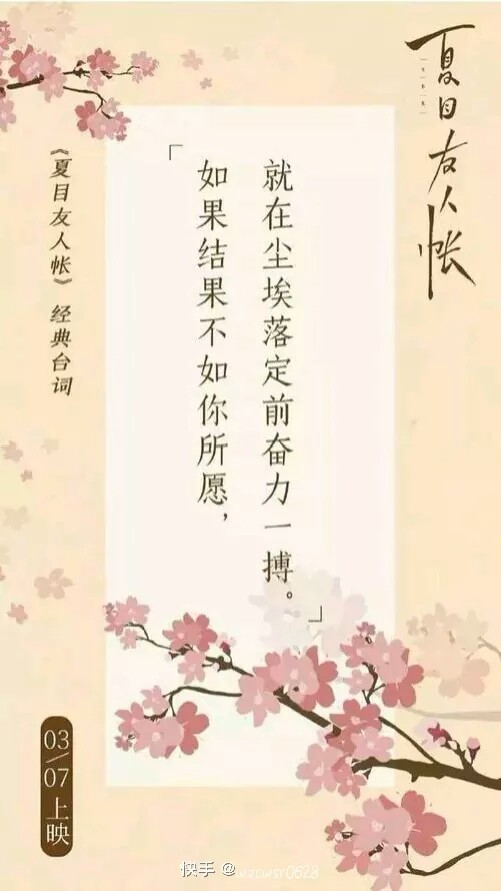 夏目友人帐
《夏目友人帐》经典台词
「如果结果不如你所愿，
就在尘埃落定前奋力一搏。」
03/07上映
快手 @